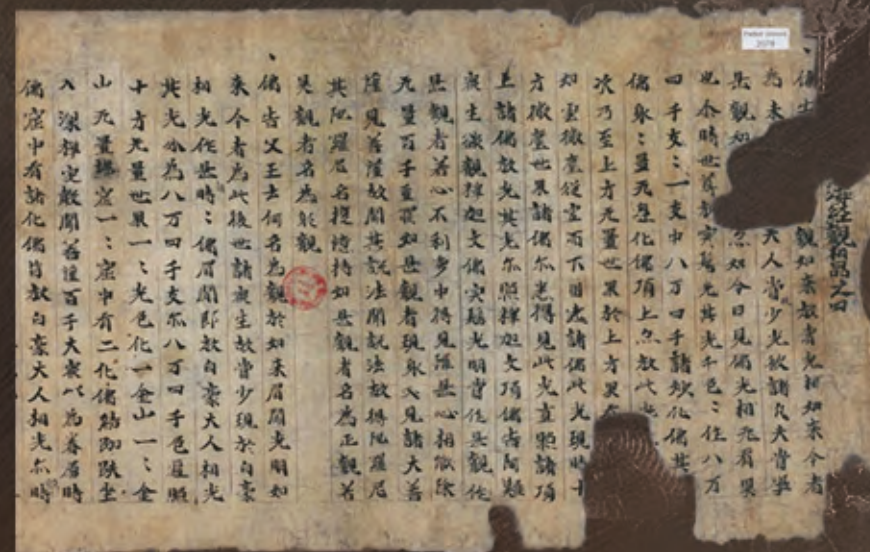 Pelliot chinois
2078
海經觀相品之四
觀如來放常光相如來今者
為未 大人 少光 諸凡夫當學
是觀如 如今日見佛光相无有異
也尒時世尊放肉髻光其光千色〻作八万
四千支〻一支中八万四千諸妙化佛其
佛身〻量无邊化佛頂上亦放此光
次乃至上方无量世界於上方界有
如雲微塵從空而下圍遶諸佛此光現時十
方微塵世界諸佛亦悉得見此光直照諸頂
上諸佛放光其光亦照釋迦文頂佛告阿難
衆生欲觀釋迦文佛肉髻光明當作是觀作
是觀者若心不利夢中得見雖是心相能除
无量百千重罪如是觀者現身必見諸大菩
薩見菩薩故聞其說法聞說法故得陁羅尼
其陁羅尼名擅憶持如是觀者名為正觀若
異觀者名為邪觀
佛告父王云何名為觀於如來眉間光明如
來今者為此後世諸衆生故當少現於白豪
相光作是時〻佛眉間即放白豪大人相光
其光分為八万四千支亦八万四千色遍照
十方无量世界一〻光色化一金山一〻金
山无量龕窟一〻窟中有一化佛結跏趺坐
入深禪定聲聞菩薩百千大衆以為眷屬時
佛窟中有諸化佛皆放白豪大人相光尒時